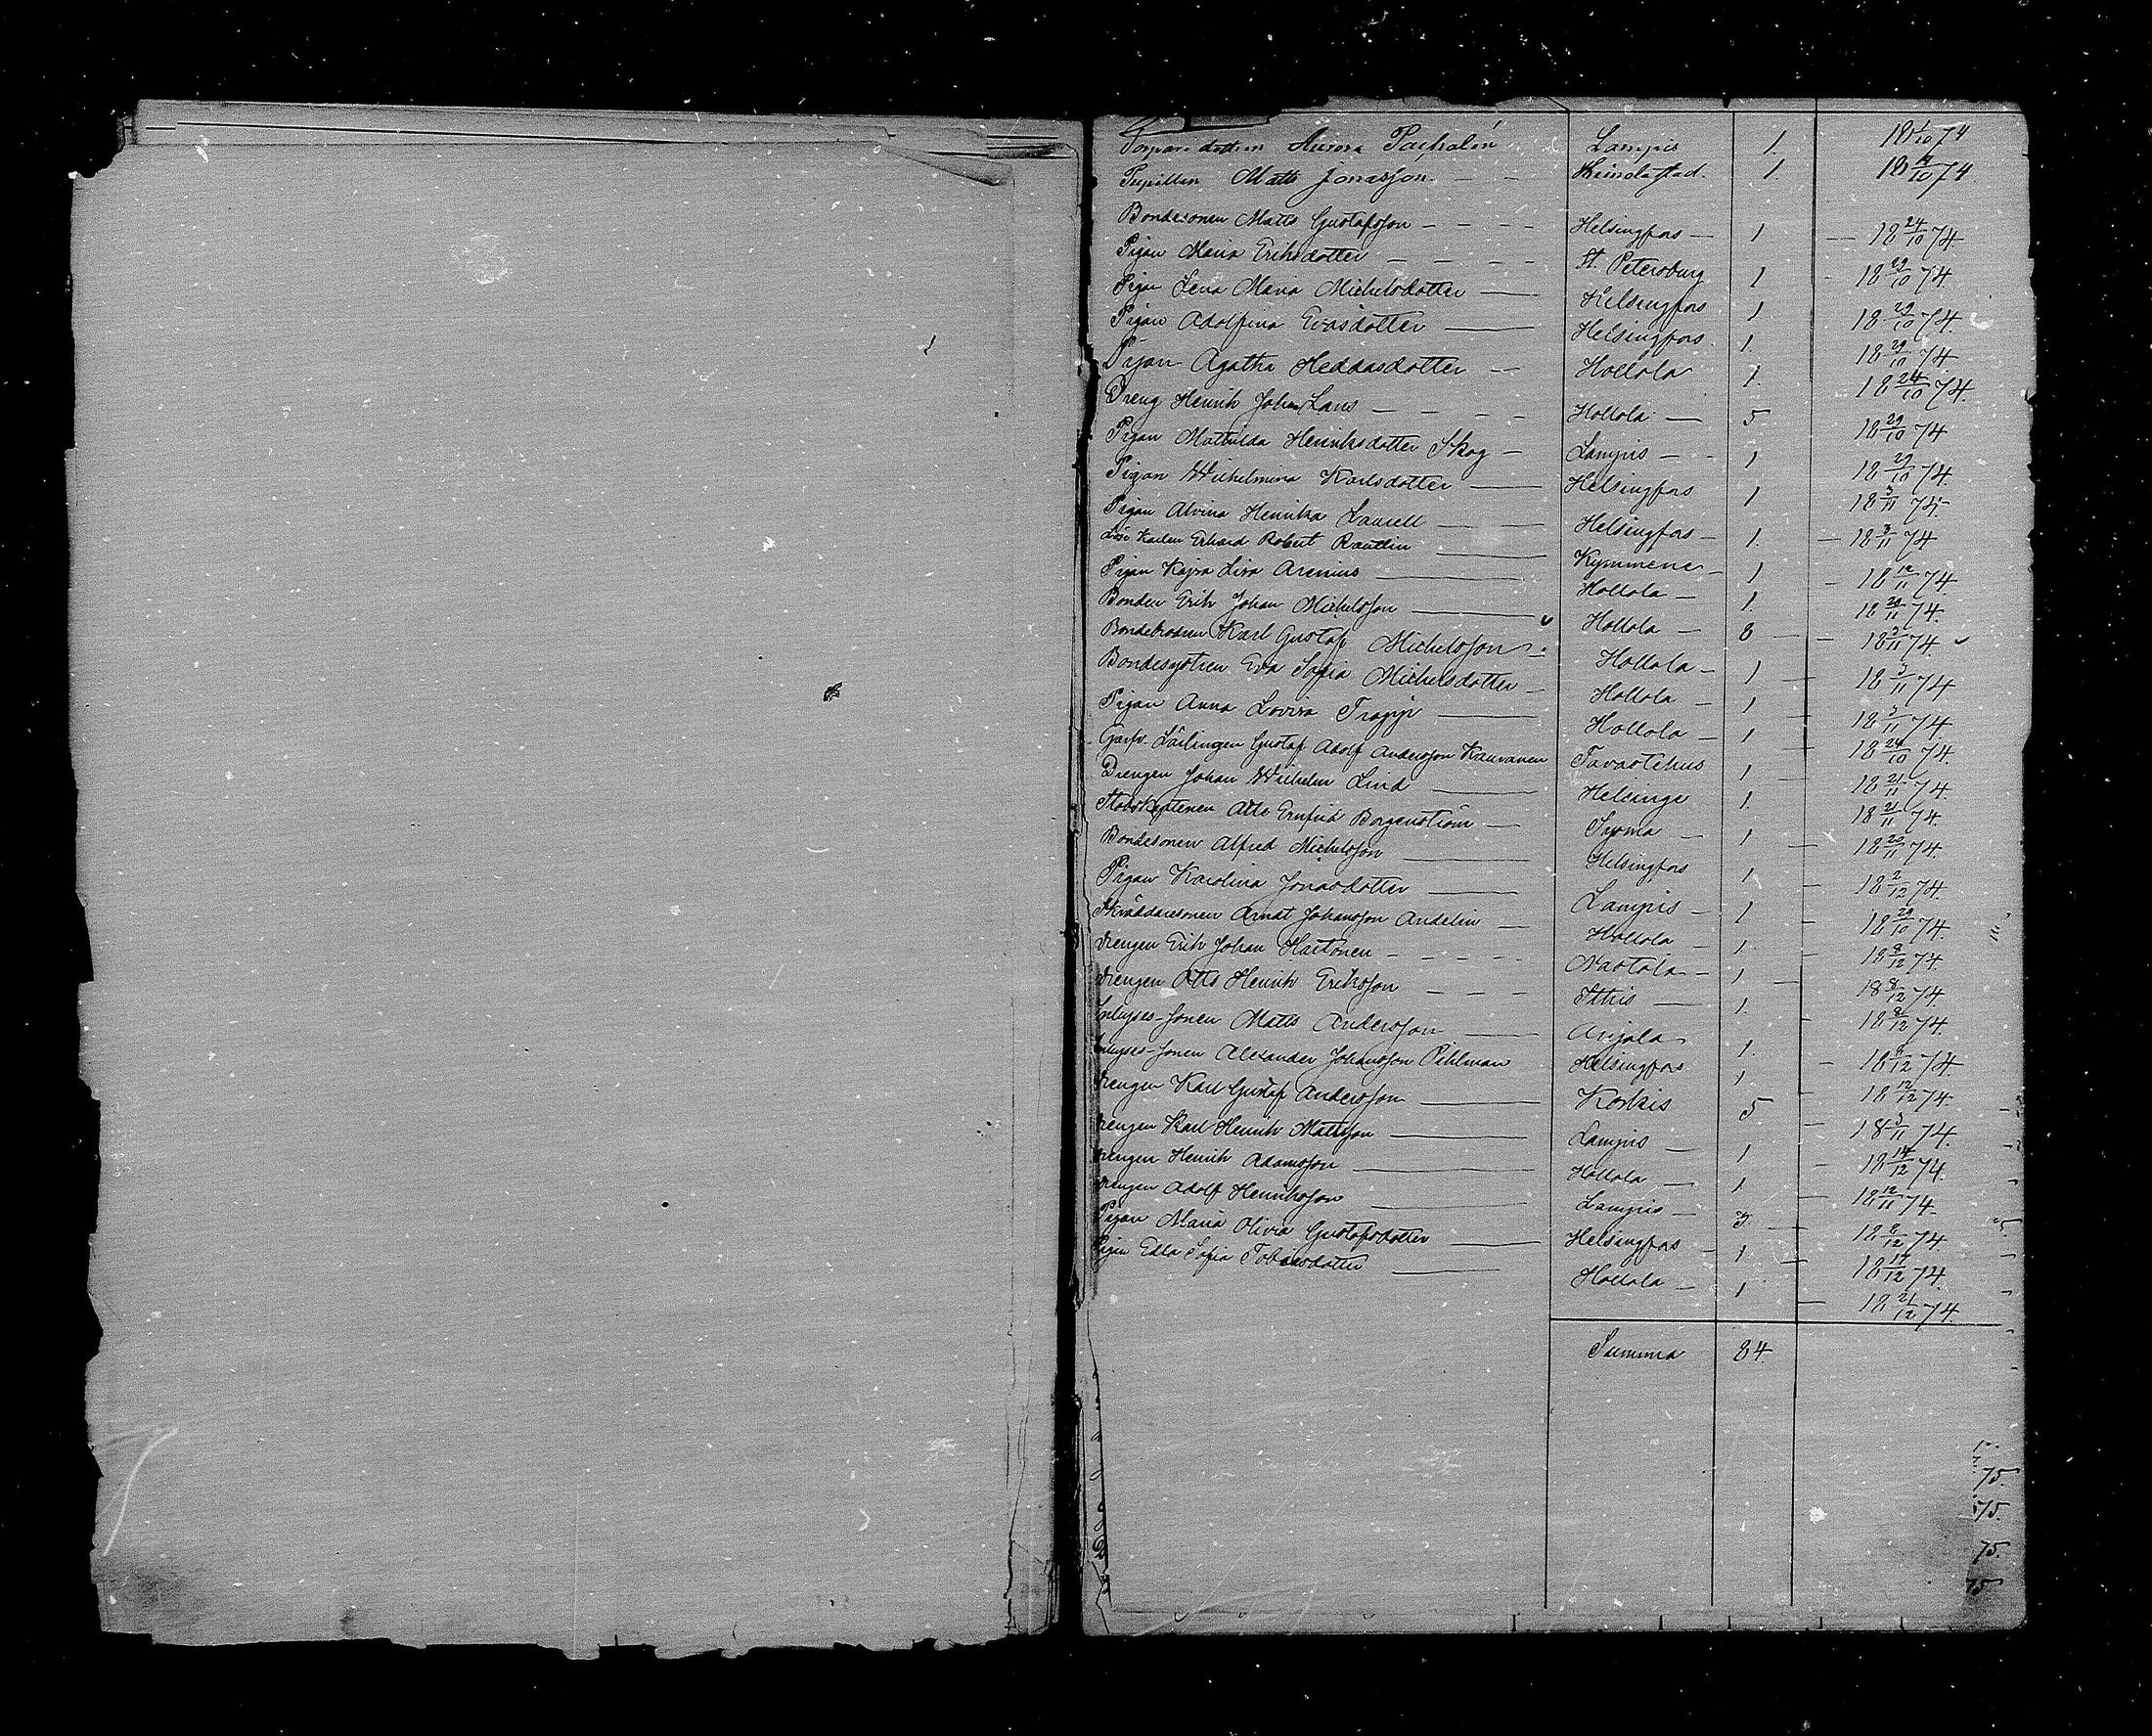 Torpare dottren Aurora Pachalén Lampis 1. 18 1/10 74
Pupillen Matts Jonasson. – – Heinola stad. 1. 18 9/10 74
Bondesonen Matts Gustafsson – – – – Helsingfors – 1 – 18 24/10 74
Pigan Maria Eriksdotter – – – – St. Petersburg 1 – 18 29/10 74
Pigan Lena Maria Michelsdotter — Helsingfors 1 18 29/10 74.
Pigan Adolfina Evasdotter — Helsingfors. 1. 18 29/10 74
Pigan Agatha Heddasdotter — Hollola 1. 18 24/10 74.
Dreng Henrik Johan Lans – – – – Hollola — 5 18 29/10 74
Pigan Mathilda Henriksdotter Skog – Lampis – – 1 18 29/10 74.
Pigan Wilhelmina Karlsdotter — Helsingfors 1 18 3/11 74.
Pigan Alvina Henrika Laurell — Helsingfors – 1. – 18 3/11 74
Lös Karlen Erhard Robert Rautlin — Kymmene – 1 – 18 12/11 74.
Pigan Kajsa Lisa Arenius — Hollola – 1. 18 20/11 74.
Bonden Erik Johan Michelsson — Hollola – 8 – – 18 5/11 74.
Bondebrodren Karl Gustaf Michelsson – Hollola – 1 – 18 5/11 74
Bondesystren Eva Sofia Michelsdotter – Hollola – 1 – 18 5/11 74
Pigan Anna Lovisa Trapp — Hollola – 1 – 18 24/10 74.
Garfv. Lärlingen Gustaf Adolf Andersson Kauranen Tavastehus 1 – 18 21/11 74.
Drengen Johan Wilhelm Lind — Helsinge 1. 18 21/11 74.
Stabskaptenen Atle Ernfrid Borgenström — Sysma – 1 – 18 20/11 74.
Bondesonen Alfred Michelsson — Helsingfors 1 – 18 2/12 74.
Pigan Karolina Jonasdotter — Lampis – 1 – 18 29/10 74.
Skräddaresonen Arnat Johansson Andelin — Hollola – 1. – 18 8/12 74.
Drengen Erik Johan Hartonen – – – – Nastola – 1 – 18 8/12 74.
Drengen Otto Henrik Eriksson – – – Itthis — 1. 18 8/12 74.
Inhyses-sonen Matts Andersson — Anjala 1. – 18 8/12 74
Inhyses-sonen Alexander Johansson Pihlman Helsingfors 1 – 18 12/12 74.
Drengen Karl Gustaf Andersson — Koskis 5 – 18 5/11 74.
Drengen Karl Henrik Mattsson — Lampis — 1 – 18 14/12 74.
Drengen Henrik Adamsson — Hollola — 1 – 18 12/11 74.
Drengen Adolf Henriksson — Lampis – 3. – 18 8/12 74.
Pigan Maria Olivia Gustafsdotter — Helsingfors – 1 – 18 17/12 74.
Pigan Edla Sofia Tobiasdotter — Hollola – 1 – 18 21/12 74.
Summa 84.
75.
75.
75.
75